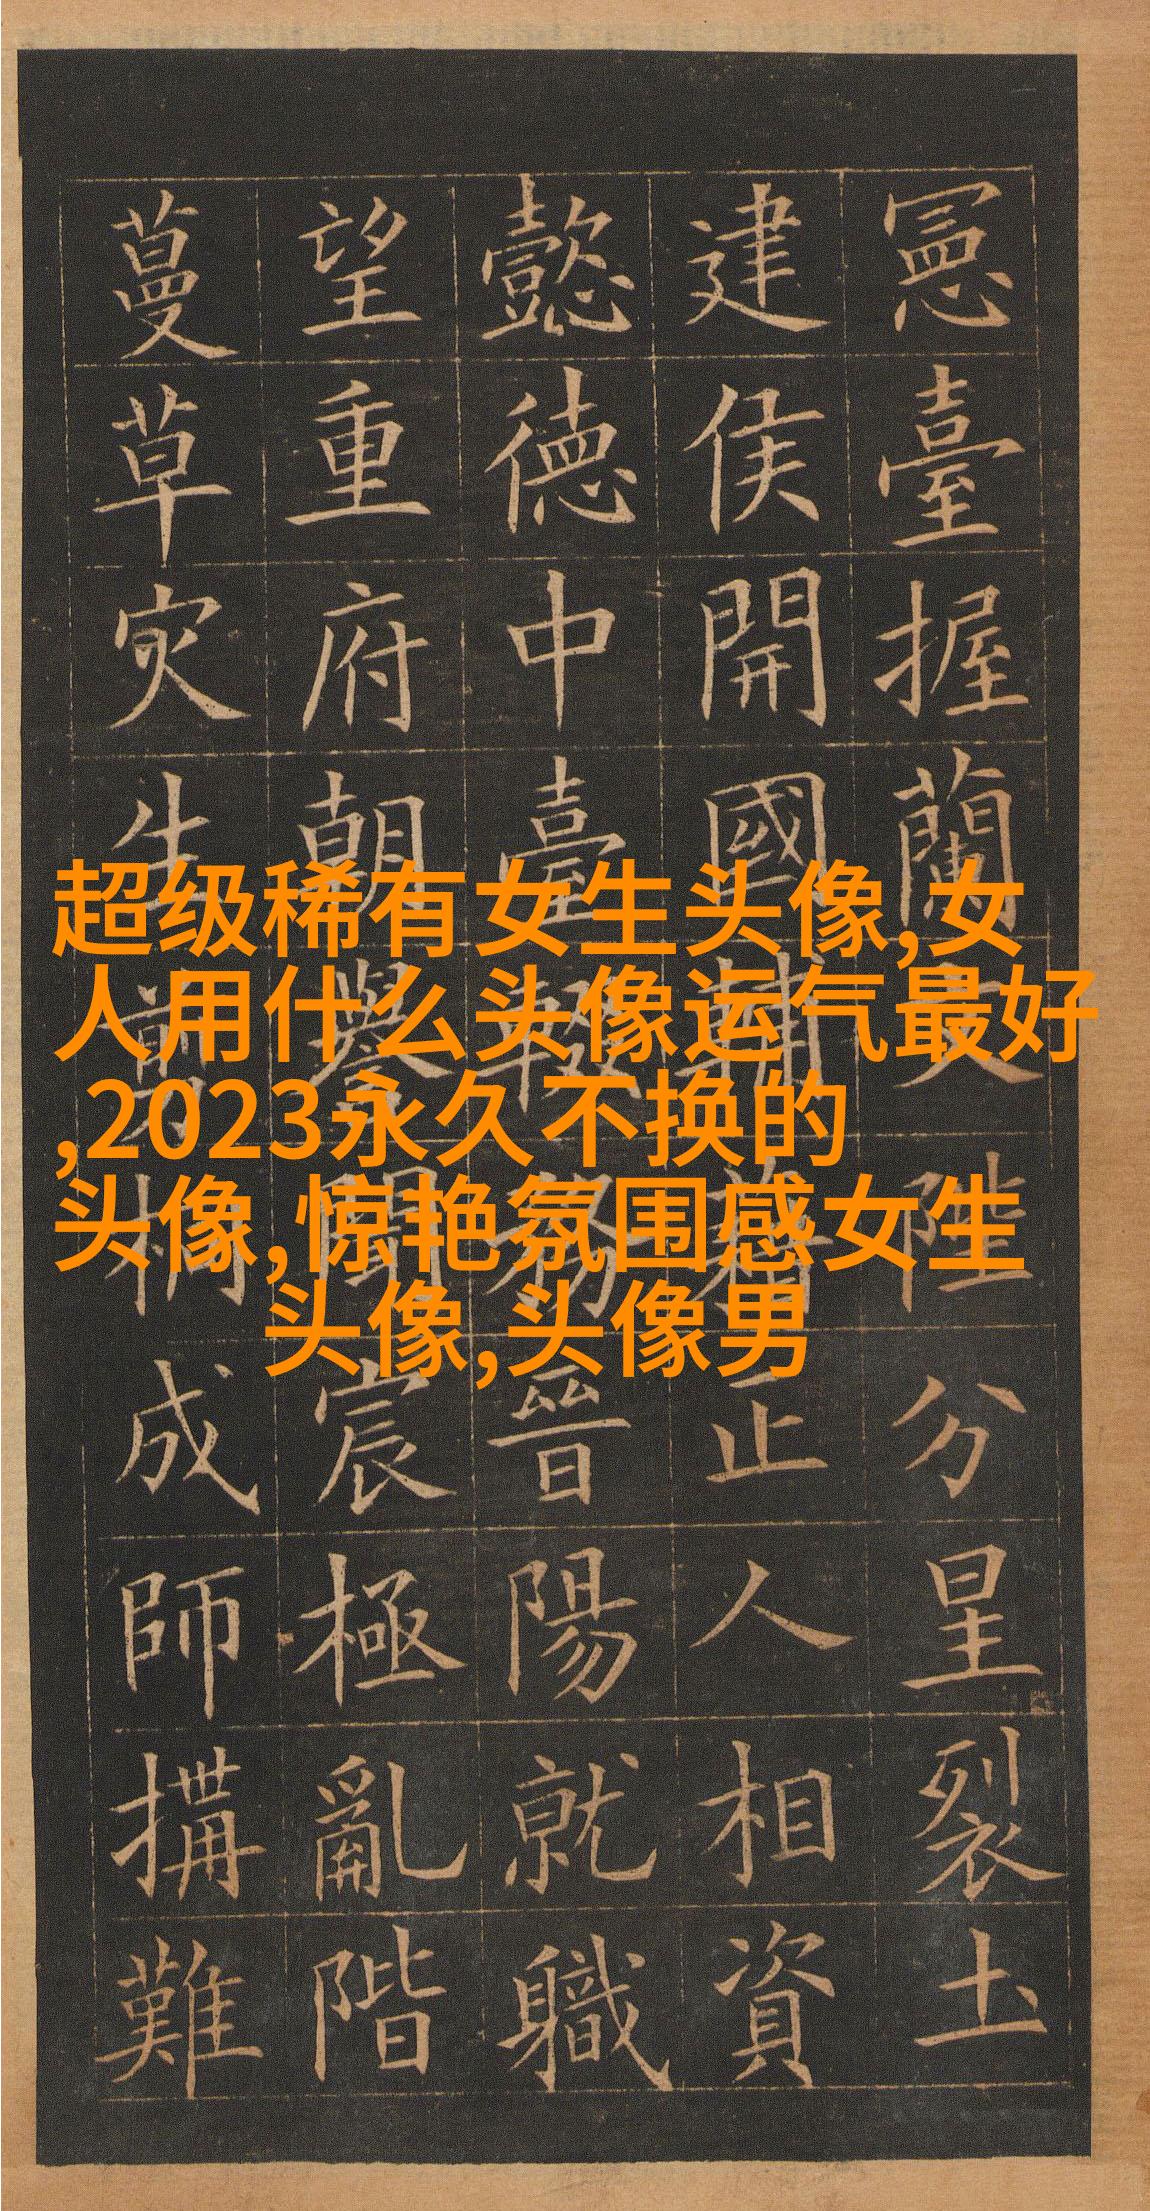 超级稀有女生头像,女
人用什么头像运气最好
,2023永久不换的
头像,惊艳氛围感女生
头像,头像男
憲臺握蘭文陛分星裂土
建侯開國輔正人相資
懿德中臺務晉陽就職
望重府朝譽聞宸極亂階
蔓草灾生剪桐成師搆難